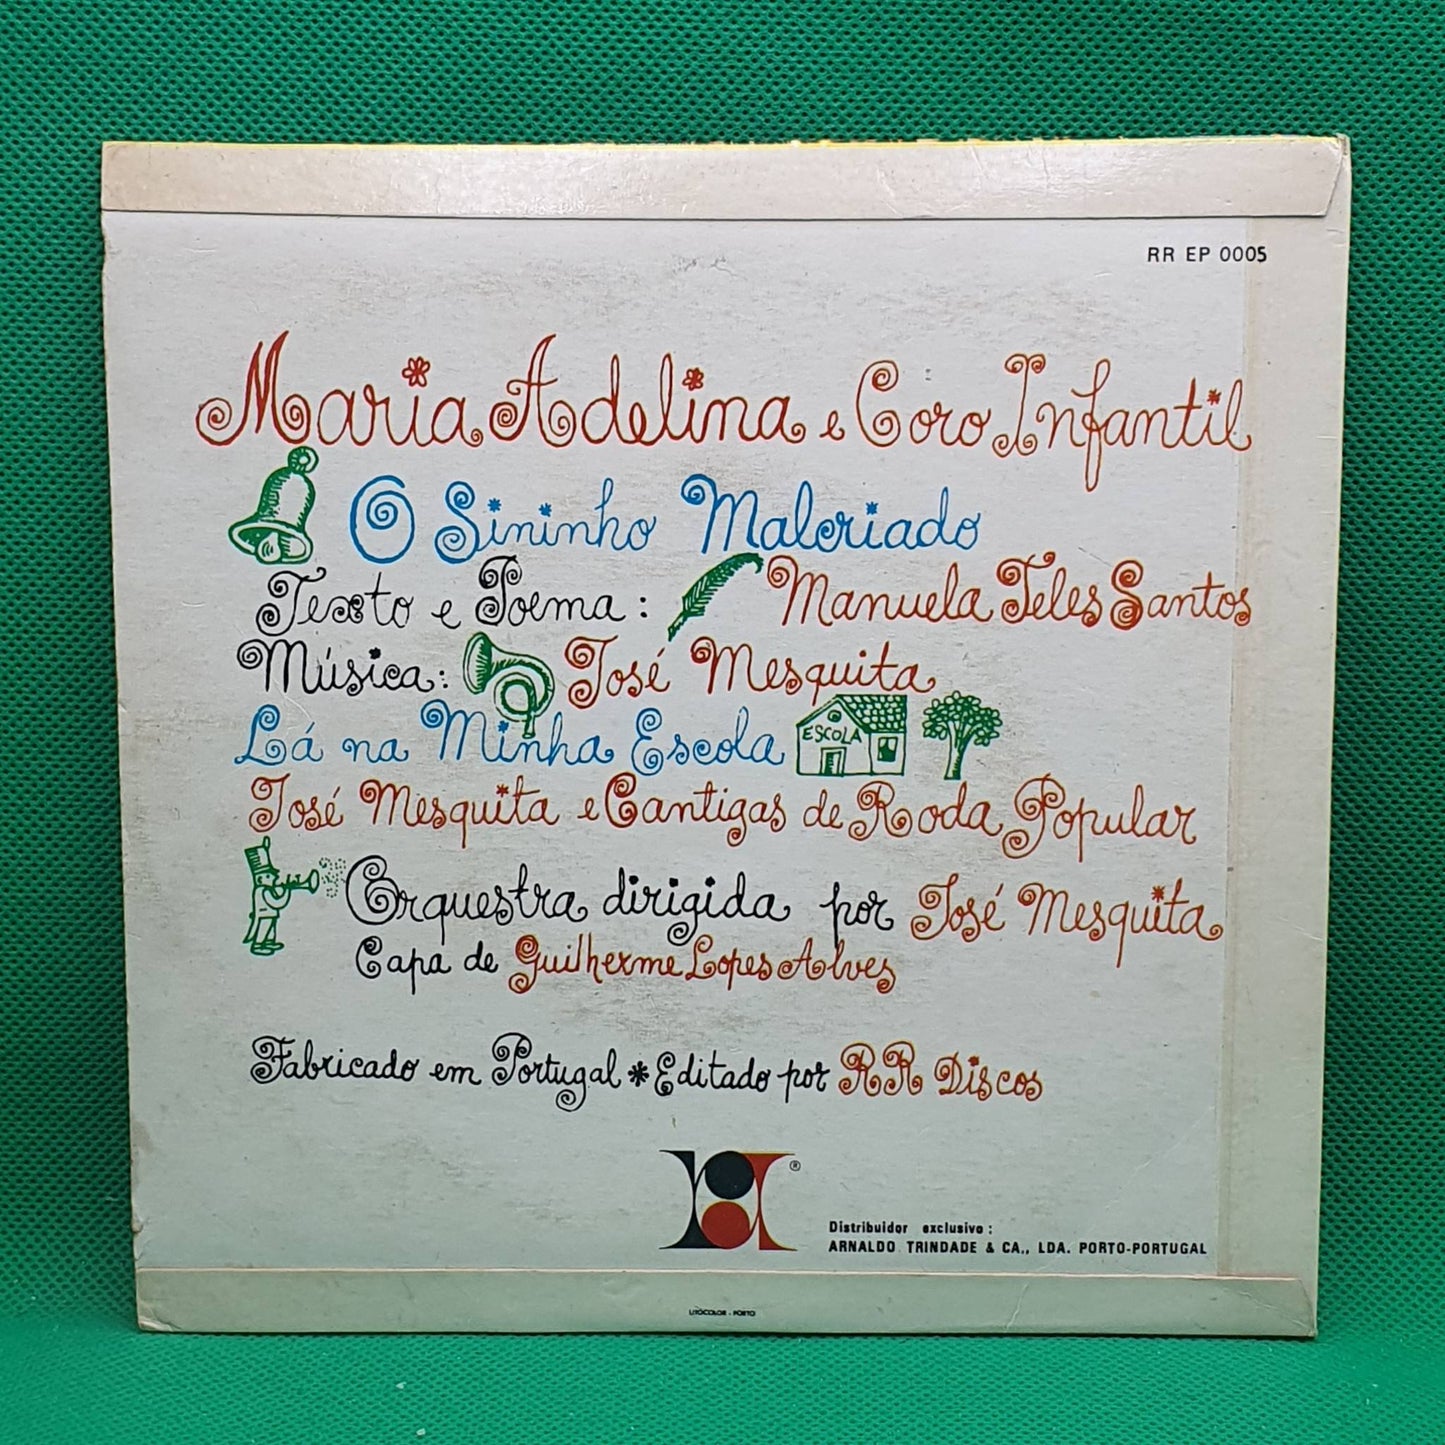 RR EP 0005
Maria Adelina e Coro Infantil
O Sininho Malcriado
Texto e Poema: Manuela Teles Santos
Música: José Mesquita
Lá na Minha Escola
ESCOLA
José Mesquita e Cantigas de Roda Popular
Orquestra dirigida por José Mesquita
Capa de Guilherme Lopes Alves
Fabricado em Portugal * Editado por RR Discos
®
Distribuidor exclusivo:
ARNALDO TRINDADE & CA., LDA. PORTO-PORTUGAL
LITOCOLOR - PORTO